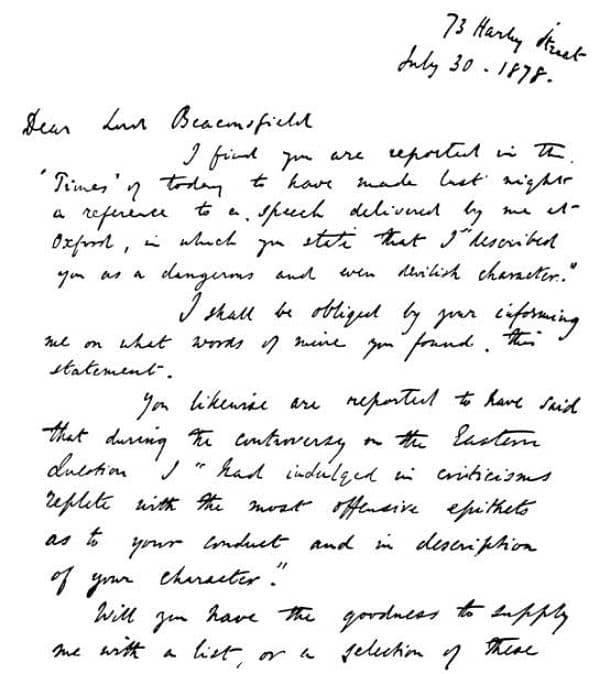 73 Harley Street
July 30 - 1878.
Dear Lord Beaconsfield
I find you are reported in the
'Times' of today to have made last night
a reference to a speech delivered by me at
Oxford, in which you state that I "described
you as a dangerous and even devilish character."
I shall be obliged by your informing
me on what words of mine you found this
statement.
You likewise are reported to have said
that during the controversy on the Eastern
Question I "had indulged in criticisms
replete with the most offensive epithets
as to your conduct and in description
of your character."
Will you have the goodness to supply
me with a list, or a selection of these